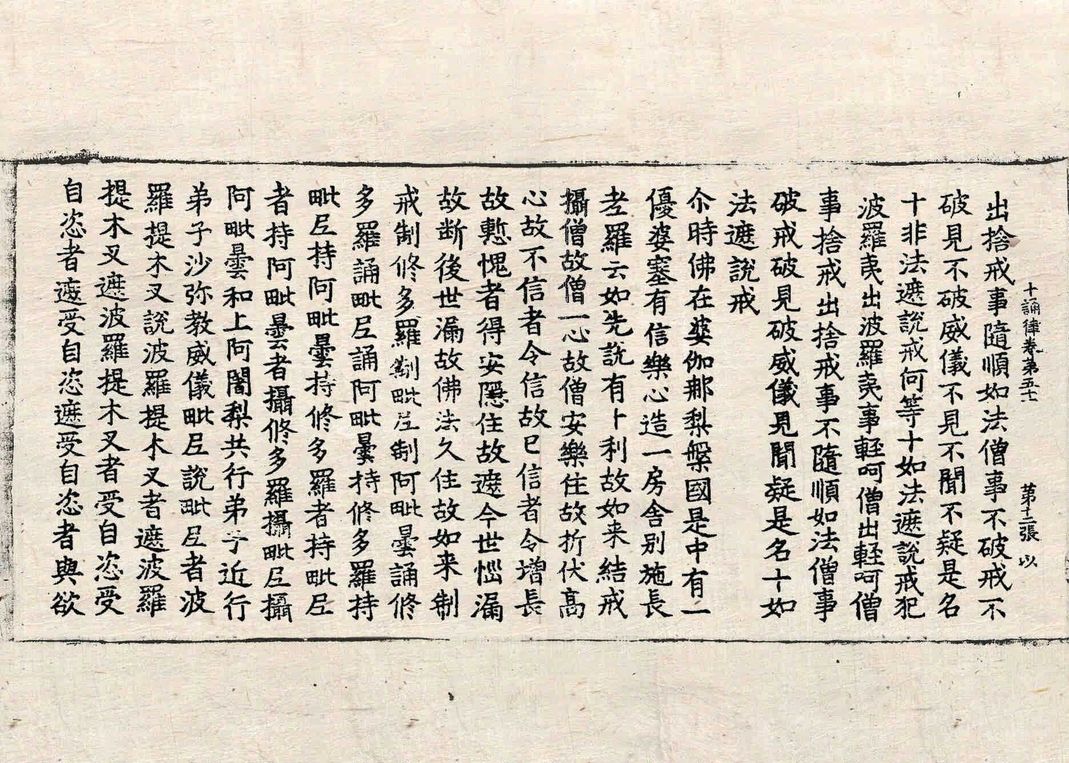 出捨戒事隨順如法僧事不破戒不
十誦律卷第五十七　第十二張　以
破見不破威儀不見不聞不疑是名
十非法遮說戒何等十如法遮說戒犯
波羅夷出波羅夷事輕呵僧出輕呵僧
事捨戒出捨戒事不隨順如法僧事
破戒破見破威儀見聞疑是名十如
法遮說戒
尒時佛在婆伽郍梨槃國是中有一
優婆塞有信樂心造一房舍別施長
老羅云如先說有十利故如来結戒
攝僧故僧一心故僧安樂住故折伏高
心故不信者令信故已信者令增長
故慙愧者得安隱住故遮今世惱漏
故断後世漏故佛法久住故如来制
戒制修多羅制毗尼制阿毗曇誦修
多羅誦毗尼誦阿毗曇持修多羅持
毗尼持阿毗曇持修多羅者持毗尼
者持阿毗曇者攝修多羅攝毗尼攝
阿毗曇和上阿闍梨共行弟子近行
弟子沙弥教威儀毗尼說毗尼者波
羅提木叉說波羅提木叉者遮波羅
提木叉遮波羅提木叉者受自恣受
自恣者遮受自恣遮受自恣者與欲